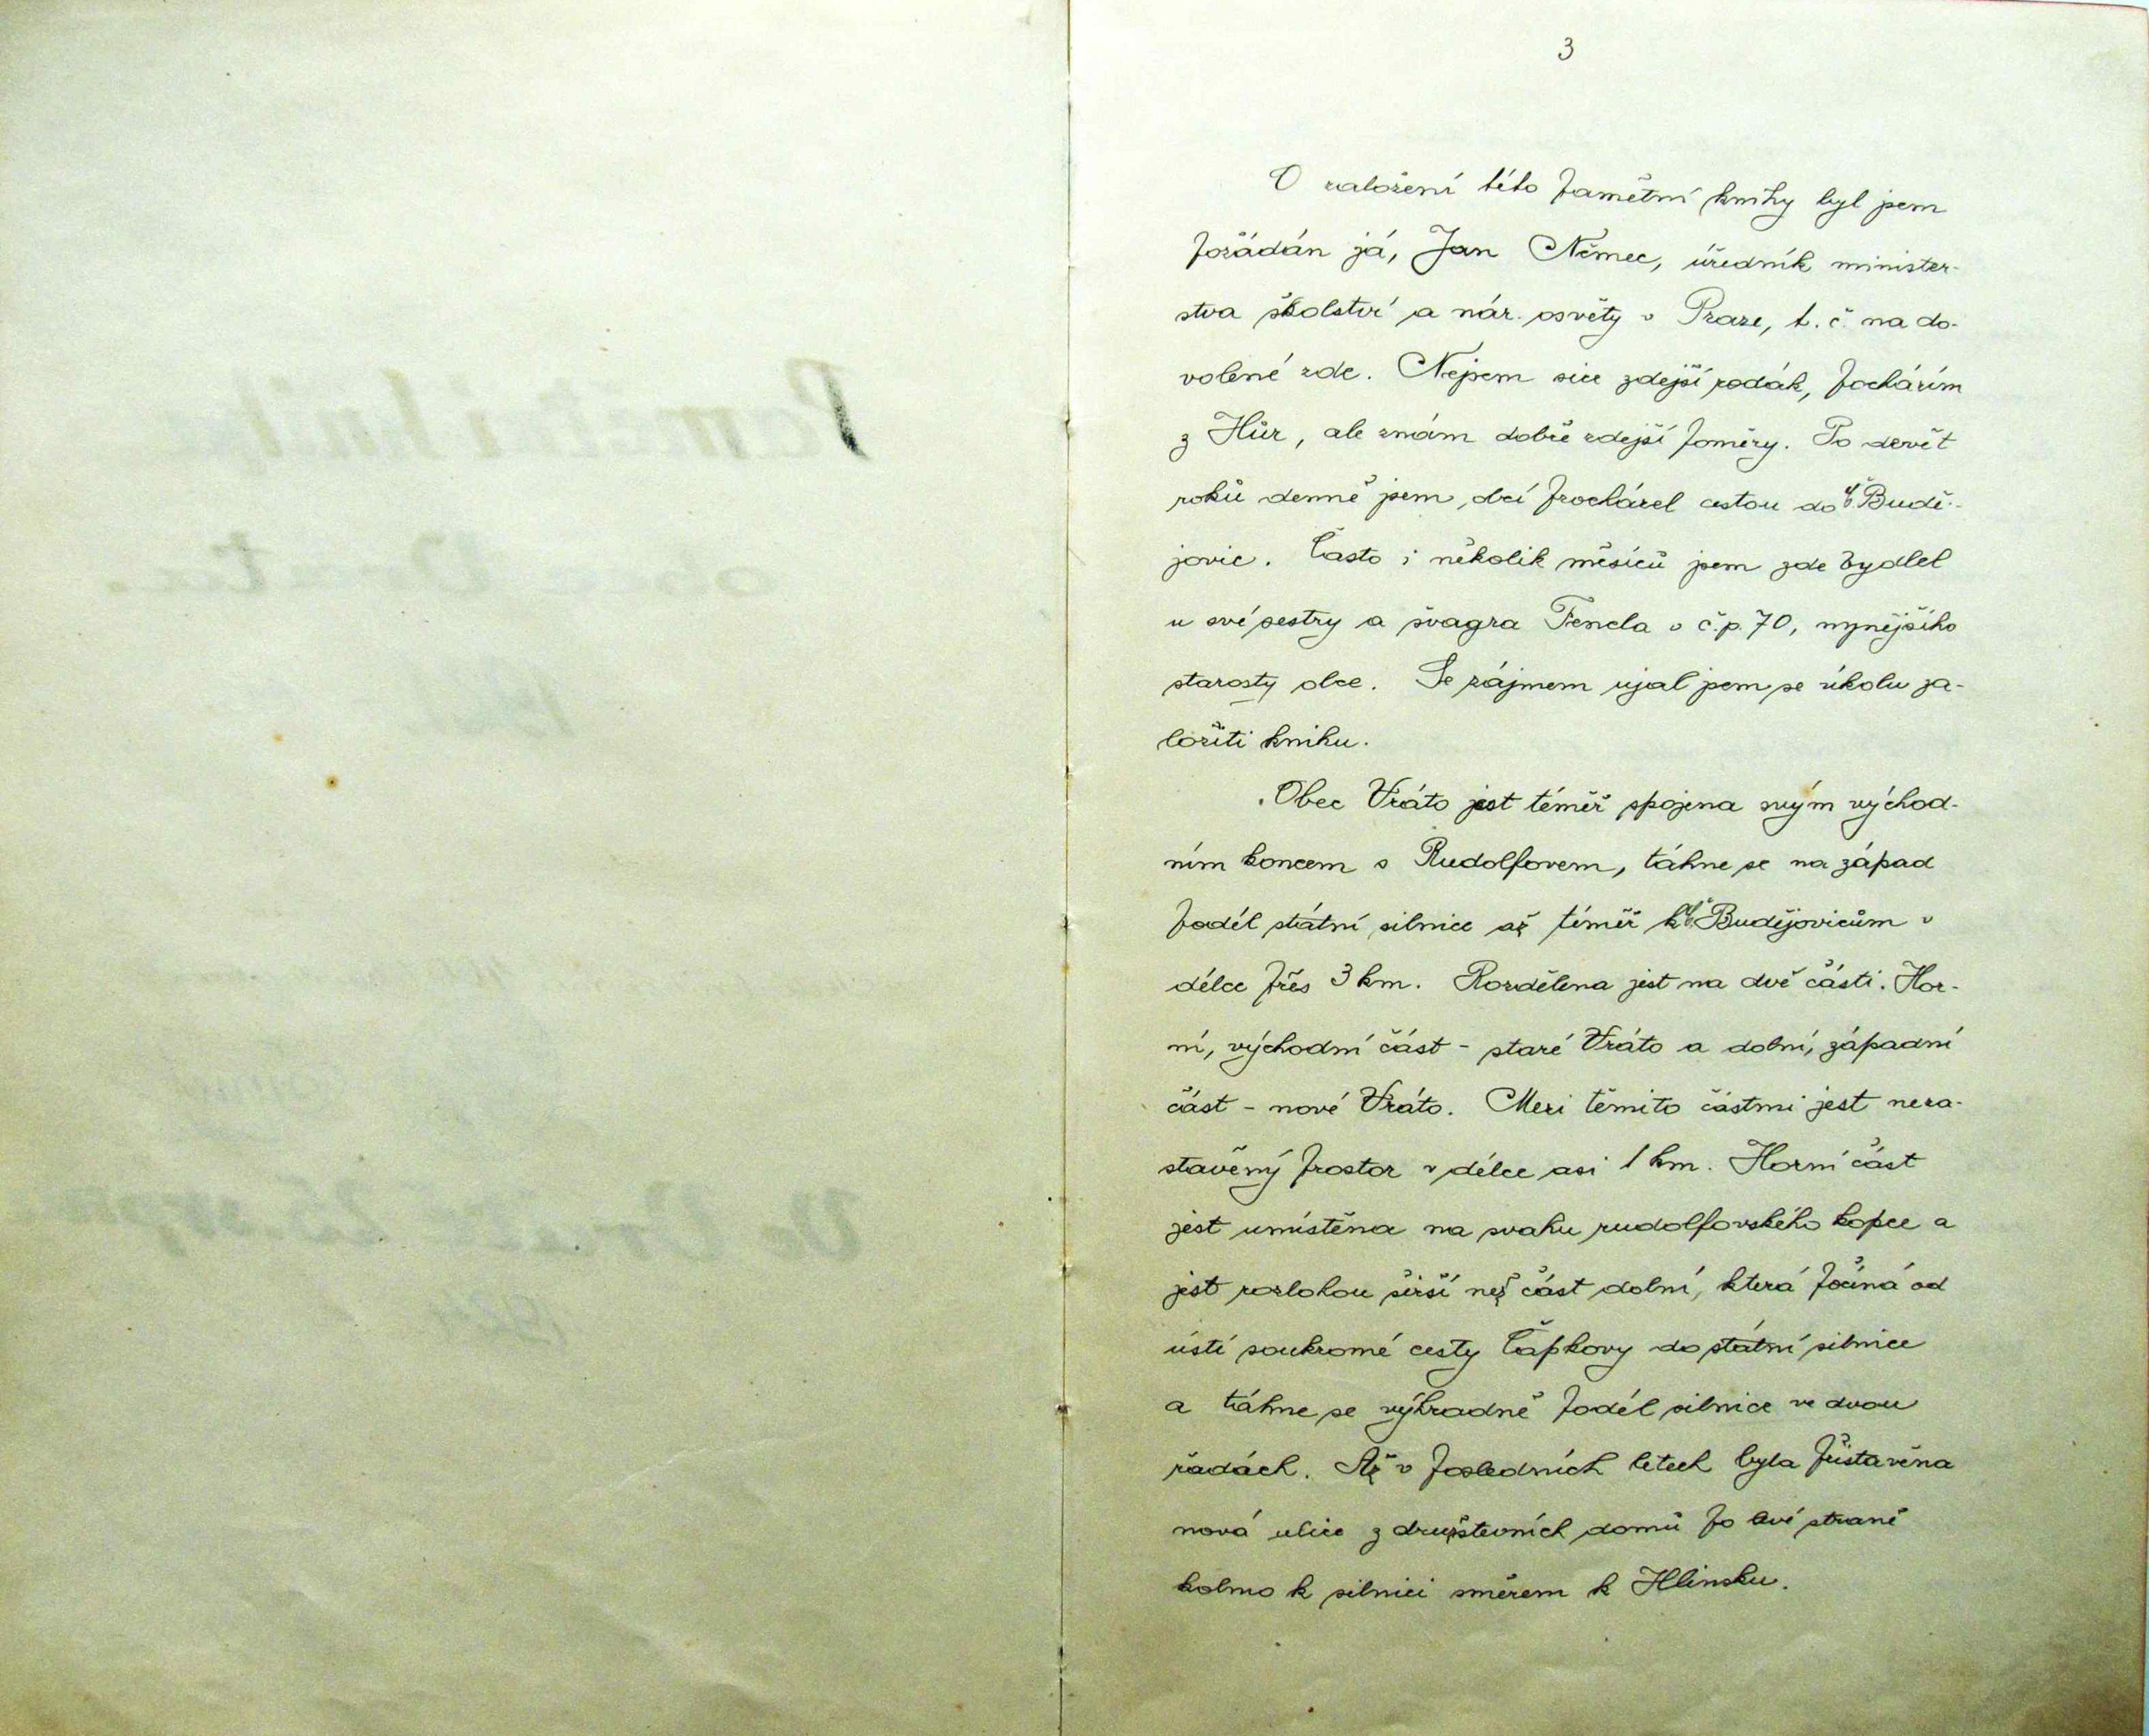 3
O založení této pamětní knihy byl jsem
požádán já, Jan Němec, úředník minister-
stva školství a nár. osvěty v Praze, t. č. na do-
volené zde. Nejsem sice zdejší rodák, pocházím
z Hůr, ale znám dobře zdejší poměry. Po devět
roků denně jsem obcí procházel cestou do Č. Budě-
jovic. Často i několik měsíců jsem zde bydlel
u své sestry a švagra Fencla v č.p. 70, nynějšího
starosty obce. Se zájmem ujal jsem se úkolu za-
ložiti knihu.
Obec Vráto jest téměř spojena svým východ-
ním koncem s Rudolfovem, táhne se na západ
podél státní silnice až téměř k Č. Budějovicům v
délce přes 3 km. Rozdělena jest na dvě části. Hor-
ní, východní část - staré Vráto a dolní, západní
část - nové Vráto. Mezi těmito částmi jest neza-
stavěný prostor v délce asi 1 km. Horní část
jest umístěna na svahu rudolfovského kopce a
jest rozlohou širší než část dolní, která počíná od
ústí soukromé cesty Čapkovy do státní silnice
a táhne se výhradně podél silnice ve dvou
řadách. Až v posledních letech byla přistavěna
nová ulice z družstevních domů po levé straně
kolmo k silnici směrem k Hlinsku.